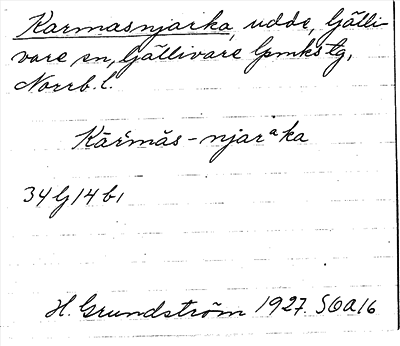 Karmasnjarka, udde, Gälli-
vare sn, Gällivare lpmkstg,
Norrb. l.
Kārmās-njarᵃka
34 G 14 b,
H. Grundström 1927. SOA 16